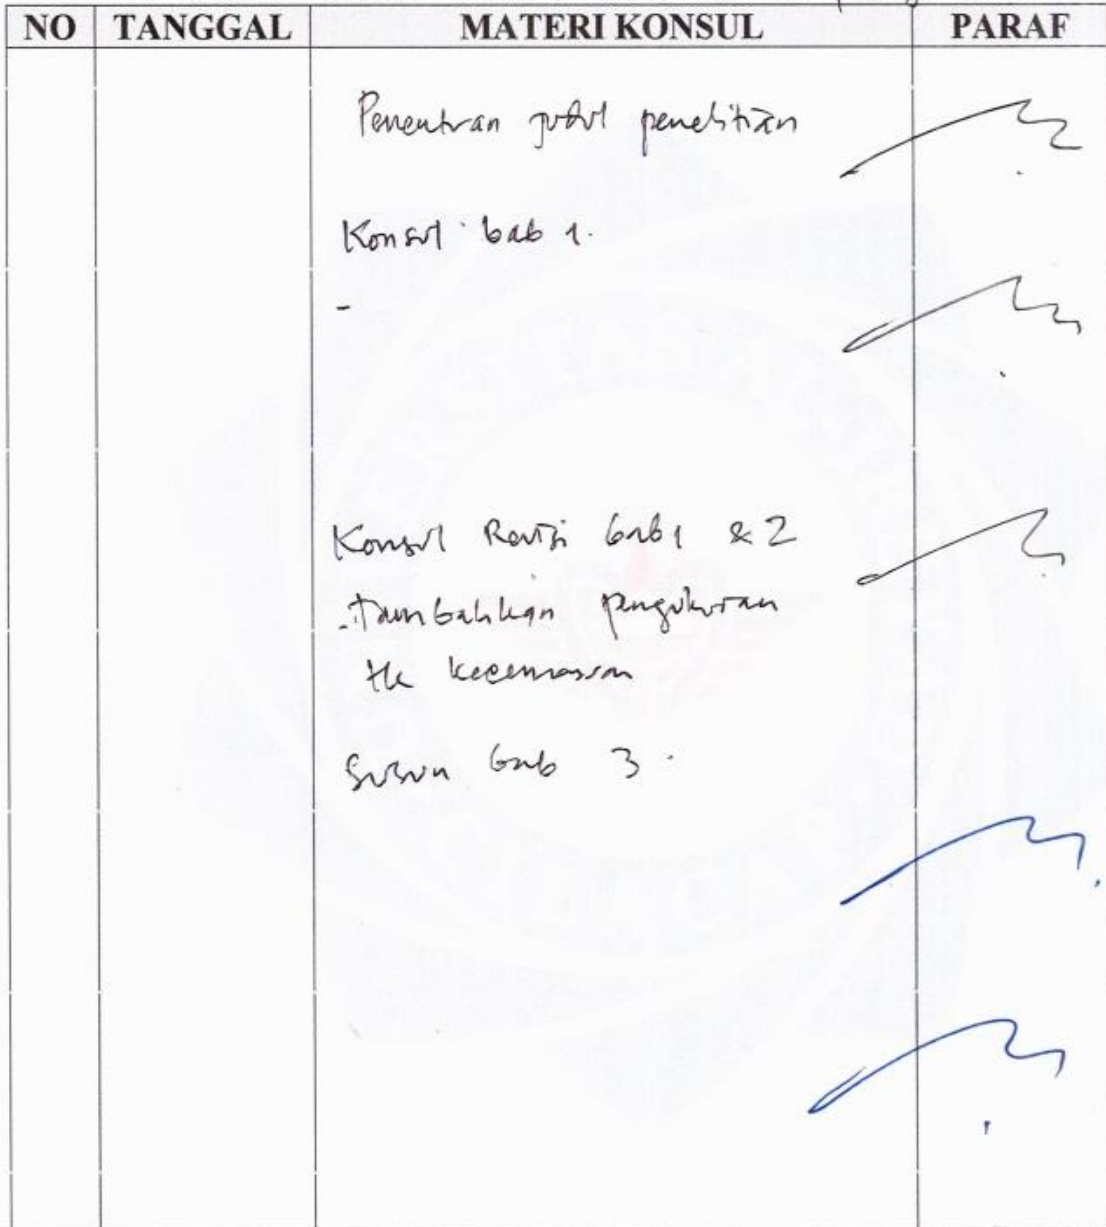 NO TANGGAL MATERI KONSUL PARAF
Penentuan judul penelitian
Konsul bab 1.
-
Konsul Revisi bab 1 & 2
- Tambahkan pengukuran
tk kecemasan
Susun bab 3.